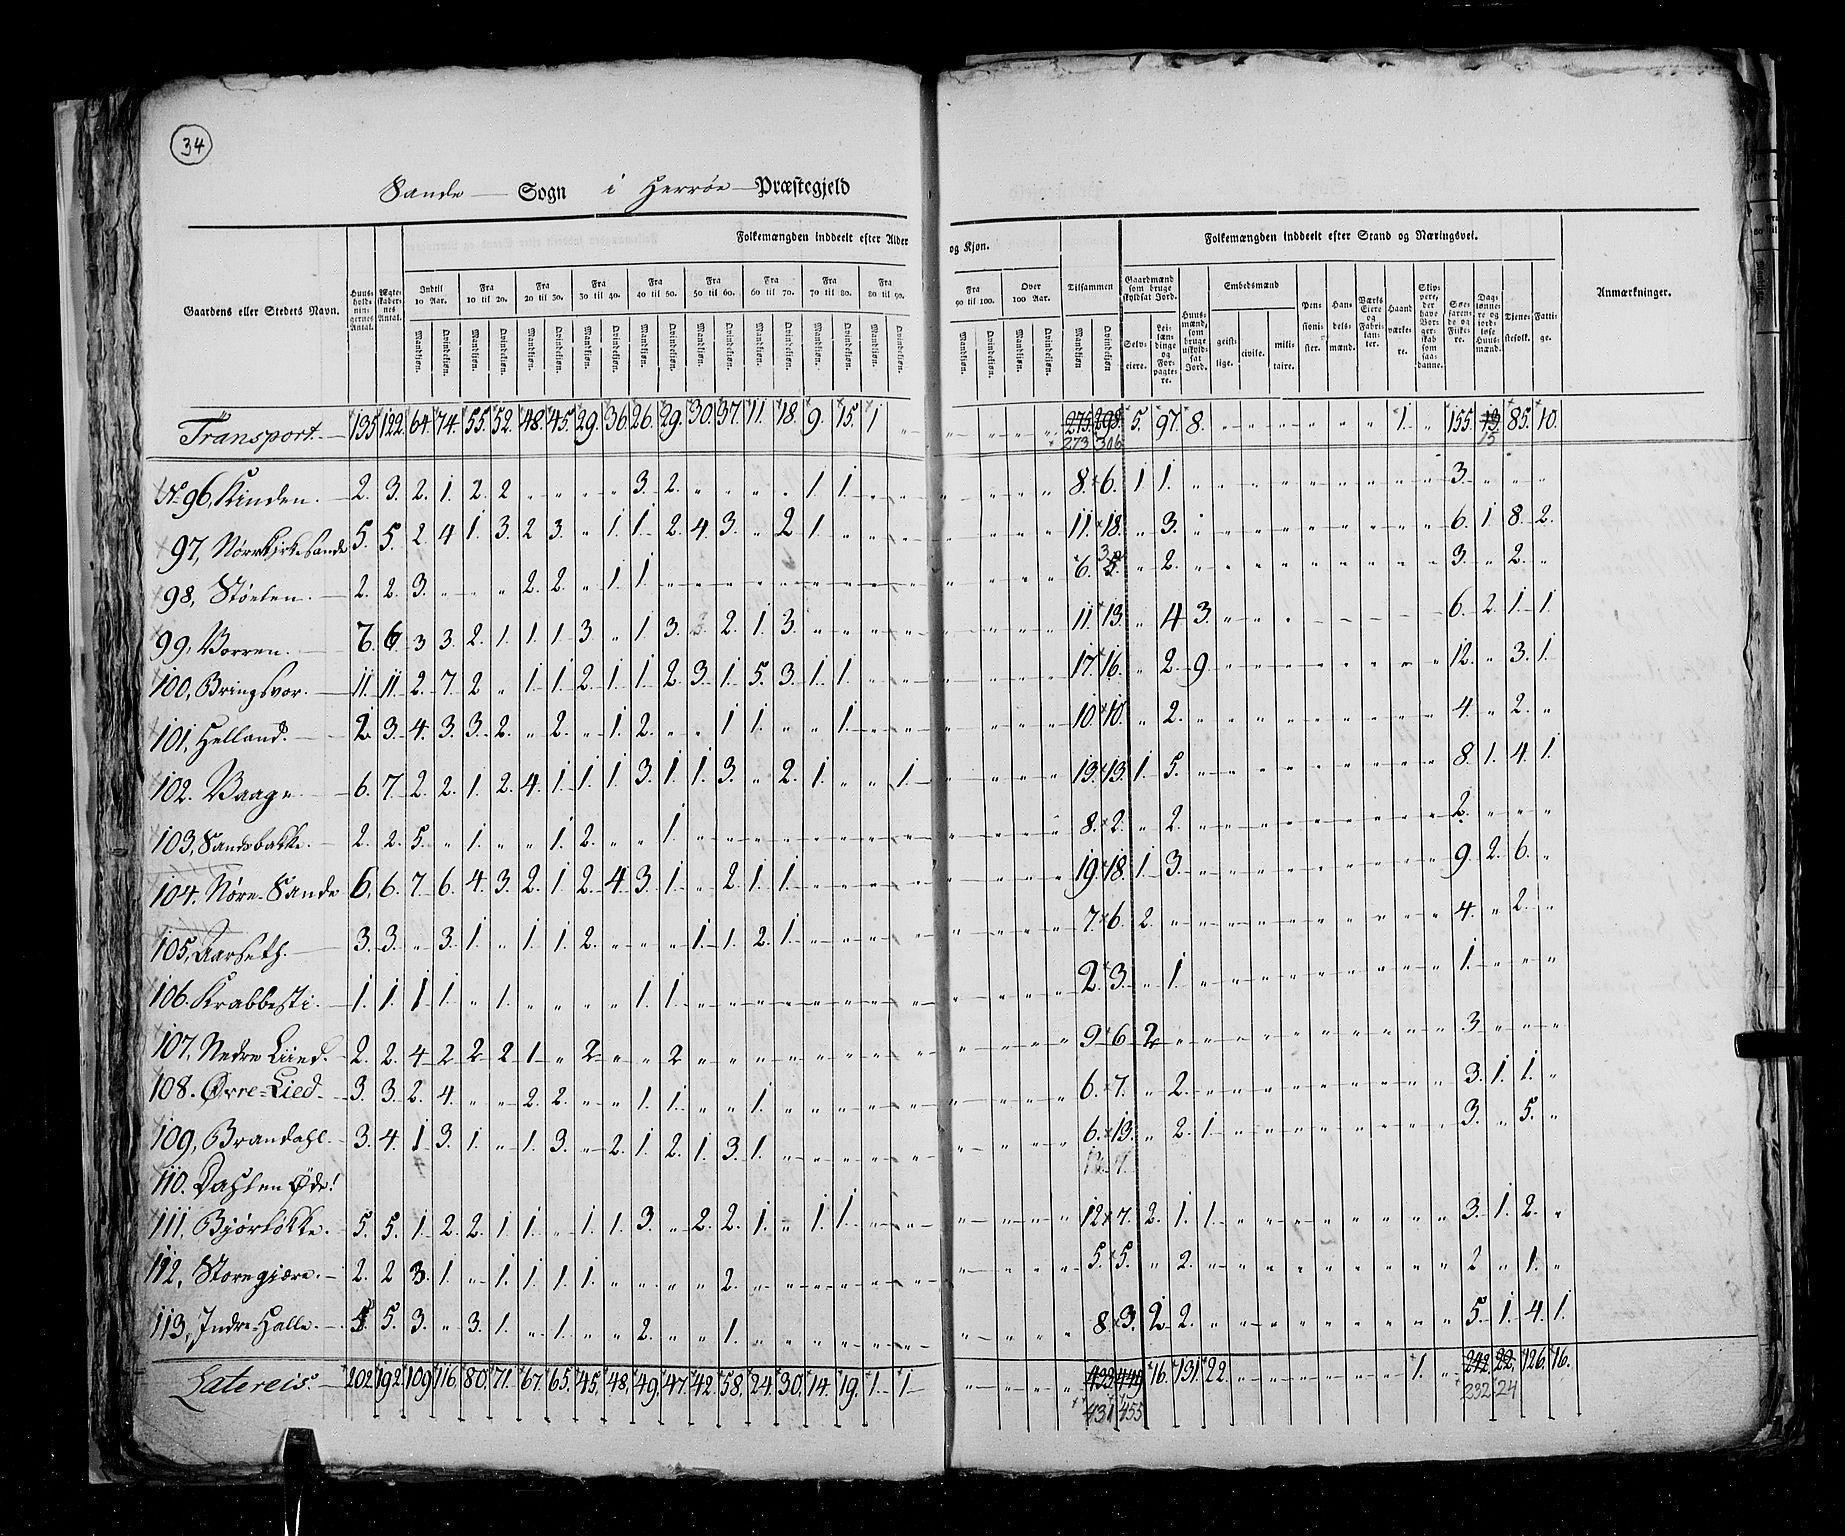 34
Sande Sogn i Herrøe Præstegjeld
Folkemængden inddeelt efter Alder og Kjøn. Folkemængden inddeelt efter Stand og Næringsvei.
Gaardens eller Stedets Navn. Huusholdningernes Antal. Ægteskabernes Antal. Indtil 10 Aar. Fra 10 til 20. Fra 20 til 30. Fra 30 til 40. Fra 40 til 50. Fra 50 til 60. Fra 60 til 70. Fra 70 til 80. Fra 80 til 90. Fra 90 til 100. Over 100 Aar. Tilsammen Gaardmænd som bruge skyldsat Jord. Huusmænd, som bruge uskyldsat Jord. Embedsmænd Pensionister. Handelsmænd. Værks Eiere og Fabrikanter. Haandværkere. Skippere, der have Borgerskab som saadanne. Søefarende og Fiskere. Daglønnere og jordløse Huusmænd. Tjenestefolk. Fattige. Anmærkninger.
Mandkjøn. Qvindekjøn. Mandkjøn. Qvindekjøn. Mandkjøn. Qvindekjøn. Mandkjøn. Qvindekjøn. Mandkjøn. Qvindekjøn. Mandkjøn. Qvindekjøn. Mandkjøn. Qvindekjøn. Mandkjøn. Qvindekjøn. Mandkjøn. Qvindekjøn. Mandkjøn. Qvindekjøn. Mandkjøn. Qvindekjøn. Mandkjøn Qvindekjøn Selveiere. Leilændinge og Forpagtere. geistlige. civile. militaire.
Transport. 135 122 64 74 55 52 48 45 29 36 26 29 30 37 11 18 9 15 1 " " " " " 275 298 5 97 8 " " " " " " 1 " 155 13 85 10
273 306 15
№ 96, Kinden. 2. 3. 2. 1. 2. 2 " " " " 3. 2. " " " " 1 1. " " " " " " 8. 6. 1 1. " " " " " " " " 3. " " "
97, Nørrkirkesande 5. 5. 2 4 1. 3. 2 3. " 1. 1. 2. 4. 3. " 2 1. " " " " " " " 11. 18. " 3. " " " " " " " " " 6. 1 8. 2.
98, Støelen. 2. 2. 3. " " " 2. 2. " 1 1. " " " " " " " " " " " " " 6. 5. " 2. " " " " " " " " " 3. " 2. "
99, Vorren. 7. 6 3 3. 2. 1. 1. 1. 3. " 1. 3. 3. 2. 1. 3. " " " " " " " " 11. 13. " 4 3. " " " " " " " " 6. 2. 1. 1.
100, Bringsvor. 11. 11. 2. 7. 2 " 1. 1. 2. 1. 1. 2. 3. 1. 5. 3. 1. 1. " " " " " " 17. 16. " 2. 9. " " " " " " " " 12. " 3. 1.
101, Helland. 2 3. 4. 3. 3. 2. " 2. " 1. 2. " " 1 1. " " 1. " " " " " " 10. 10. " 2. " " " " " " " " " 4. " 2. "
102. Vaage 6. 7. 2. 2. 1. 2. 4. 1. 1. 1. 3. 1. 1. 3. " 2. 1. " " 1. " " " " 19. 13. 1. 5. " " " " " " " " " 8. 1. 4. 1.
103, Sandsbakke. 2. 2. 5. " 1. " " 1. 2. " " 1 " " " " " " " " " " " " 8. 2. " 2. " " " " " " " " " 2. " " "
104. Nøre-Sande 6. 6. 7. 6. 4. 3. 2. 1. 2. 4. 3. 1. " 2. 1. 1. " " " " " " " " 19. 18. 1. 3. " " " " " " " " " 9. 2. 6. "
105, Aarseth. 3. 3. " 3. 1. " 1. 1. 2. " " " 1. 1. 2. 1. " " " " " " " " 7. 6. 2. " " " " " " " " " " 4. " 2. "
106. Krabbesti. 1. 1. 1 1. " 1. " " " " 1. 1. " " " " " " " " " " " " 2. 3. " 1. " " " " " " " " " 1. " " "
107, Nedre Liied. 2. 2. 4 2 2 2 1 " 2 " " 2 " " " " " " " " " " " " 9. 6. 2 " " " " " " " " " " 3 " " "
108. Øvre-Lied. 3. 3. 2. 4. " " 2. 2. " " 1. 1. " " 1. " " " " " " " " " 6. 7. " 2. " " " " " " " " " 3. 1. 1. "
109, Brandahl. 3. 4. 1 3. 1. " 1. 3. " 2. 1. 2. 1. 3. 1. " " " " " " " " " 6. 13. " 2. 1. " " " " " " " " 3. " 5. "
110. Dahlen Øde!
111, Bjørløkke. 5. 5. 1. 2. 2. 1 1. " 1. 1. 3. " 2. 2. 1. " 1. 1. " " " " " " 12. 7. 2. 1. 1. " " " " " " " " 3. 1. 2. "
112, Storegjære. 2. 2 3. 1. " 1. 1. 1. 1. " " " " 2. " " " " " " " " " " 5. 5. " 2. " " " " " " " " " 2 " 1. "
113, Indre-Halle. 5. 5. 3. " 3. 1. " 1. " " 2. " " 1. " " " " " " " " " " 8. 3. 2 2. " " " " " " " " " 5. 1. 4. 1.
Latereis. 202 192 109 116 80 71. 67. 65. 45. 48. 49. 47. 42. 58. 24. 30. 14. 19. 1. 1. " " " " 433 449 16. 131. 22. " " " " " " 1. " 242 22 126. 16.
431 455 232 24